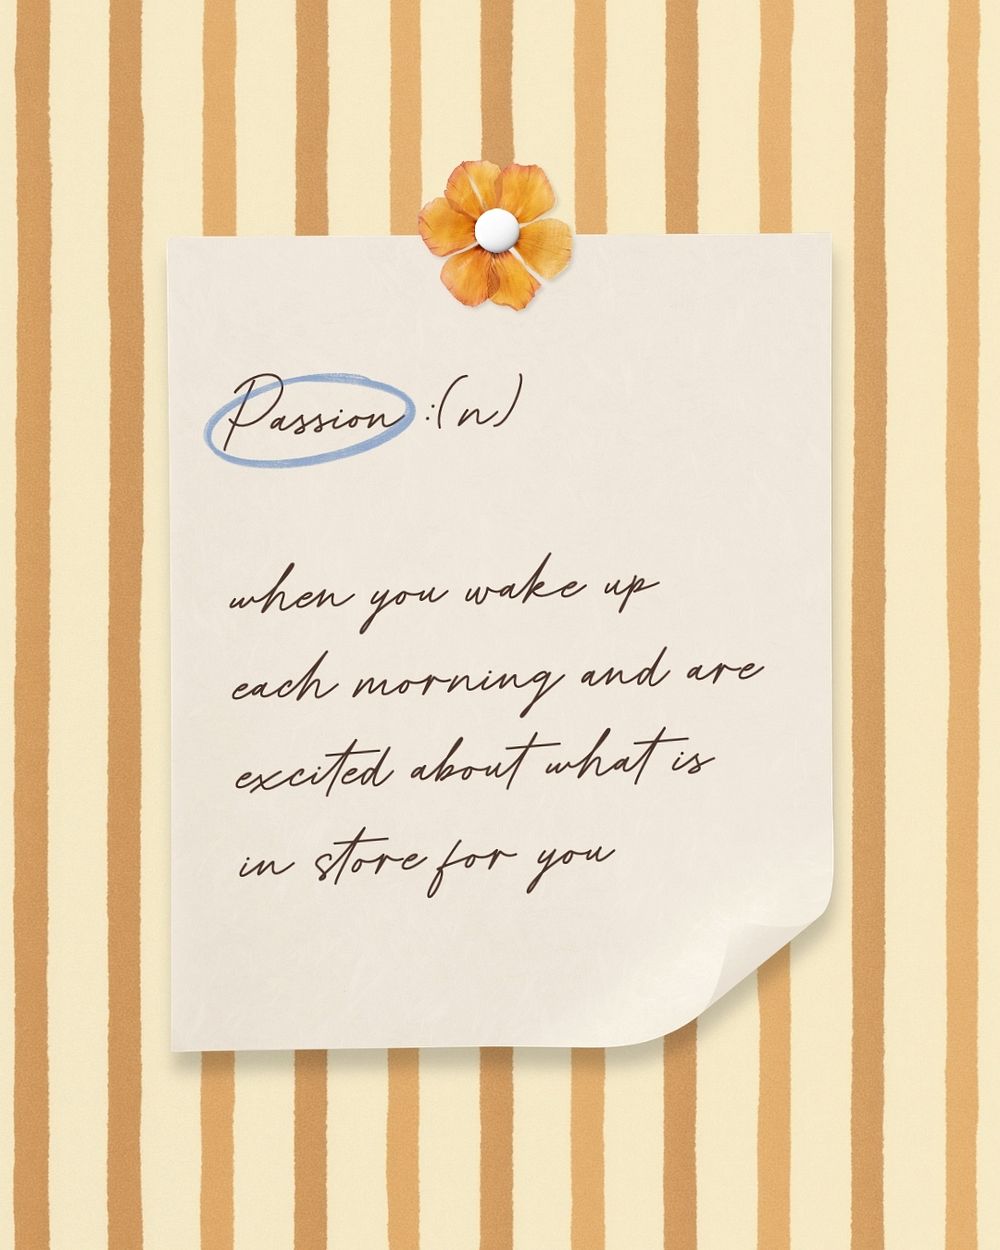 Passion :(n)
when you wake up
each morning and are
excited about what is
in store for you